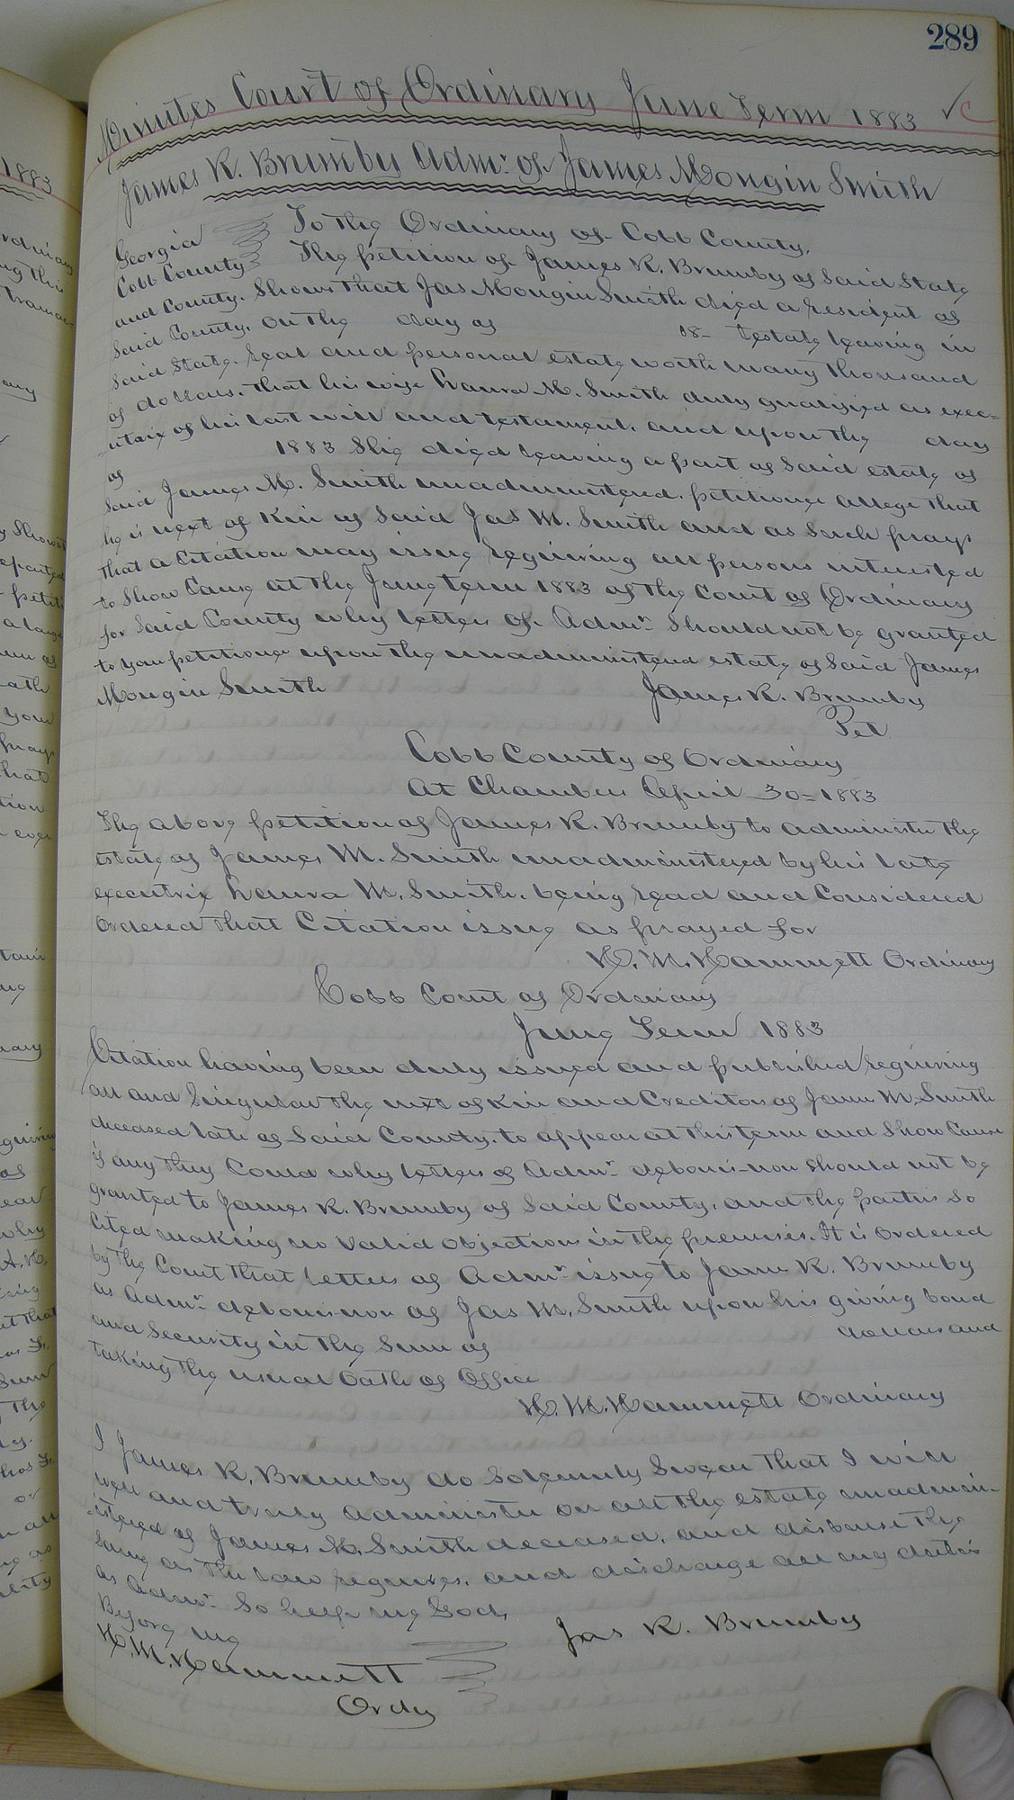 289
Minutes Court of Ordinary June Term 1883
James R. Brumby Adm.r of James Mongin Smith
Georgia To the Ordinary of Cobb County,
Cobb County The petition of James R. Brumby of Said State
and County. Shows that Jas Mongin Smith died a resident of
Said County. on the day of 18- testate leaving in
Said State. real and personal estate worth many thousand
of dollars. that his wife Laura M. Smith duly qualified as exec-
utrix of his last will and testament. and upon the day
of 1883 She died leaving a part of Said estate of
Said James M. Smith unadministered. petitioner allege that
he is next of Kin of Said Jas M. Smith and as Such prays
that a Citation may issue requiring all persons interested
to Show Cause at the June term 1883 of the Court of Ordinary
for Said County why letters of Adm.n Should not be granted
to your petitioner upon the unadministered estate of Said James
Mongin Smith James R. Brumby
Pet
Cobb County of Ordinary
At Chambers April 30- 1883
The above petition of James R. Brumby to administer the
estate of James M. Smith unadministered by his late
executrix Laura M. Smith. being read and Considered
Ordered that Citation issue as prayed for
H. M. Hammett Ordinary
Cobb Court of Ordinary
June Term 1883
Citation having been duly issued and published requiring
all and Singular the next of Kin and Creditors of James M. Smith
deceased late of Said County. to appear at this term and Show Cause
if any they Could why letters of Adm.n debonis-non Should not be
granted to James R. Brumby of Said County. and the parties So
Cited making no Valid objection in the premises. It is Ordered
by the Court that letters of Adm.n issue to James R. Brumby
as Adm.r debonis non of Jas M. Smith upon his giving bond
and Security in the Sum of dollars and
taking the usual Oath of Office
H. M. Hammett Ordinary
I James R. Brumby do Solemnly Swear that I will
well and truly administer on all the estate unadmin-
istered of James M. Smith deceased, and disburse the
Same as the law requires. and discharge all my duties
as Adm.r So help me God,
Before me Jas R. Brumby
H. M. Hammett
Ordy